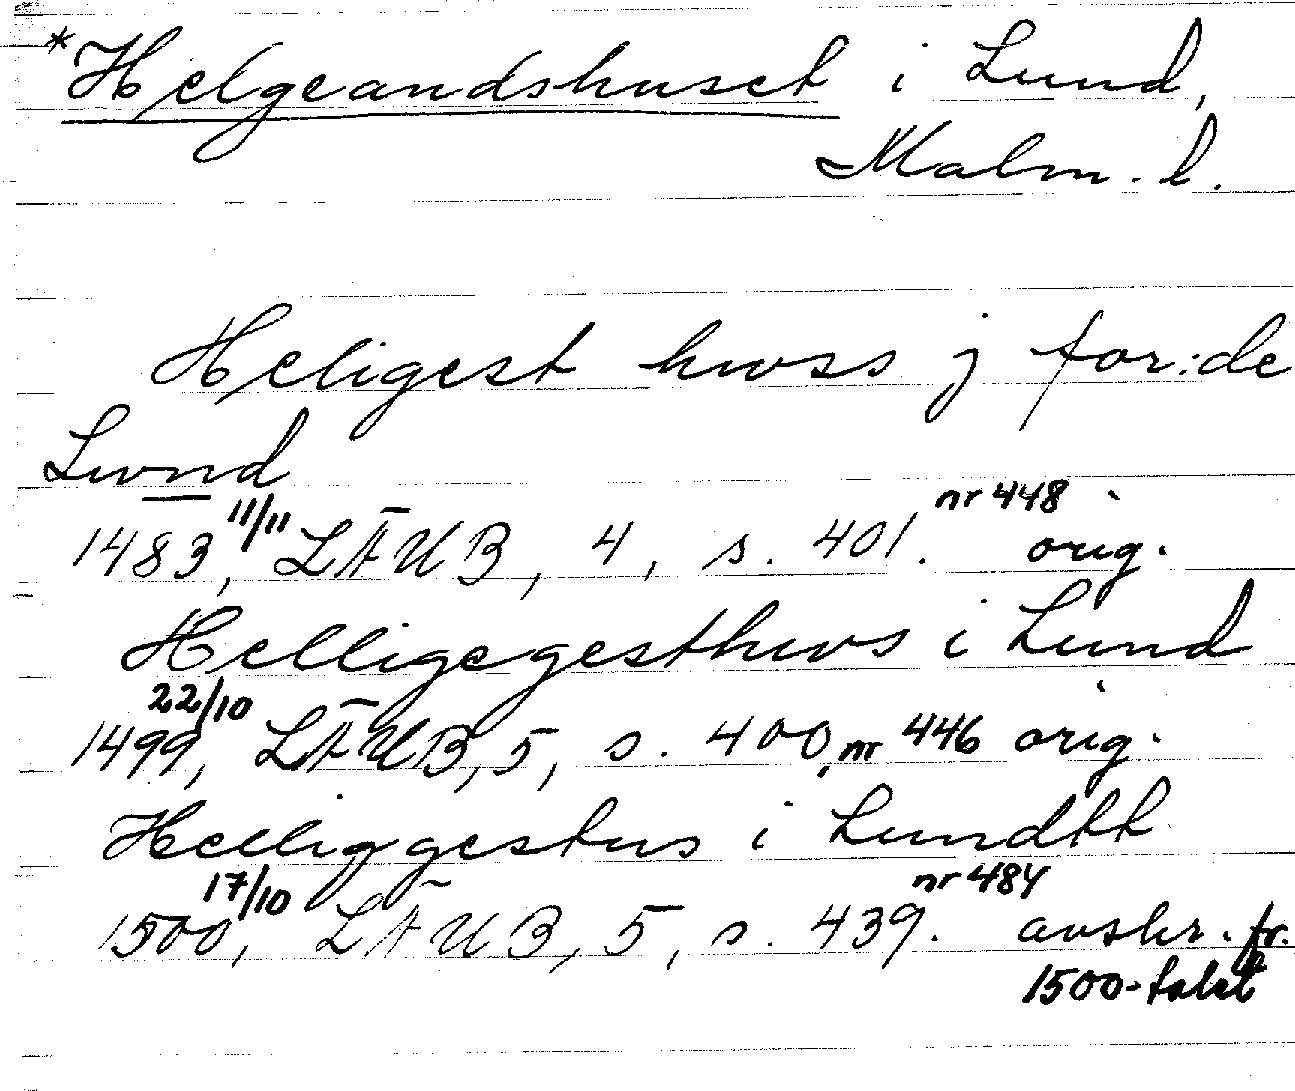 *Helgeandshuset i Lund,
Malm. l.
Heligest hwss j for:de
Lwnd
1483, 11/11 LÄUB, 4, s. 401. nr 448 orig.
Helligegesthws i Lund
1499, 22/10 LÄUB, 5, s. 400, nr 446 orig.
Helliggestus i Lundtt
1500, 17/10 LÄUB, 5, s. 439. nr 484 avskr. fr.
1500-talet